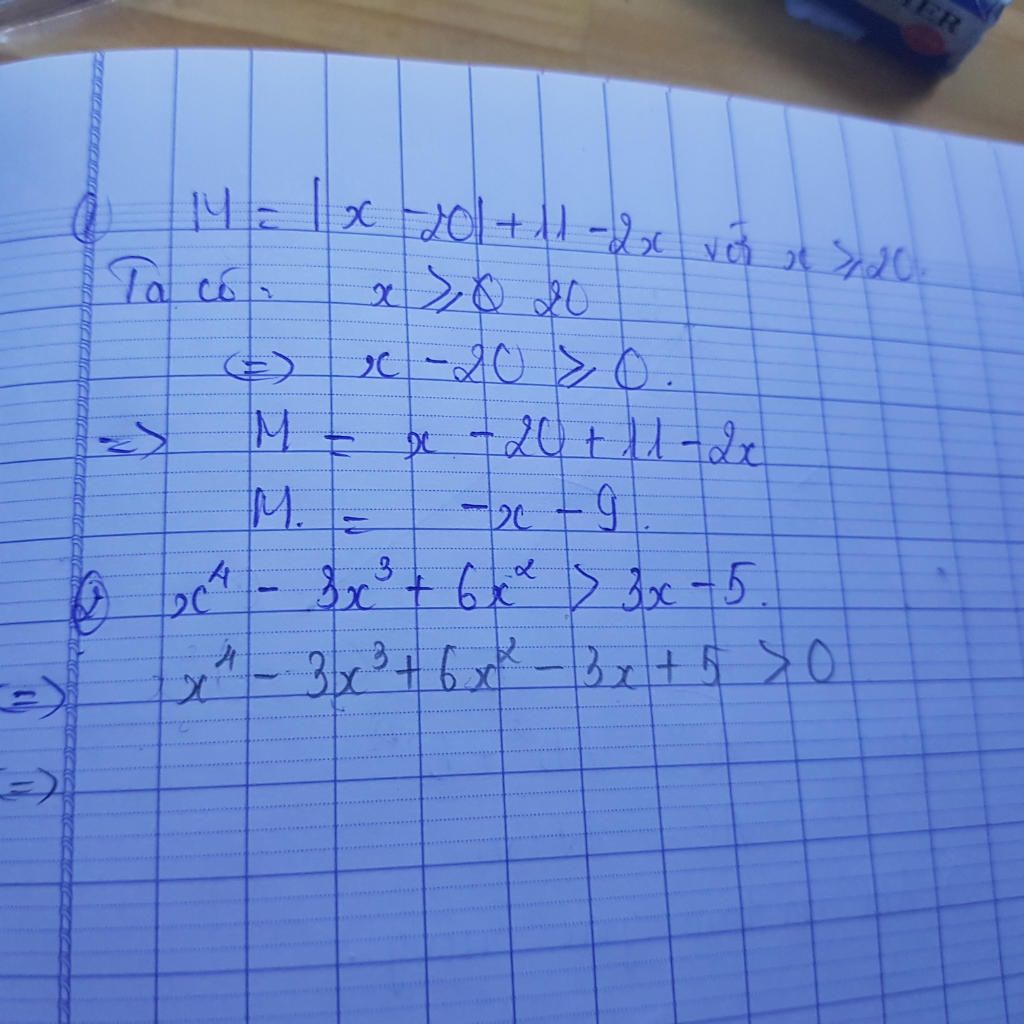 TER
① M = |x - 20| + 11 - 2x với x ⩾ 20.
Ta có: x ⩾ 20
<=> x - 20 ⩾ 0.
=> M = x - 20 + 11 - 2x
M. = -x - 9.
② x⁴ - 3x³ + 6x² > 3x - 5.
=> x⁴ - 3x³ + 6x² - 3x + 5 > 0
=>